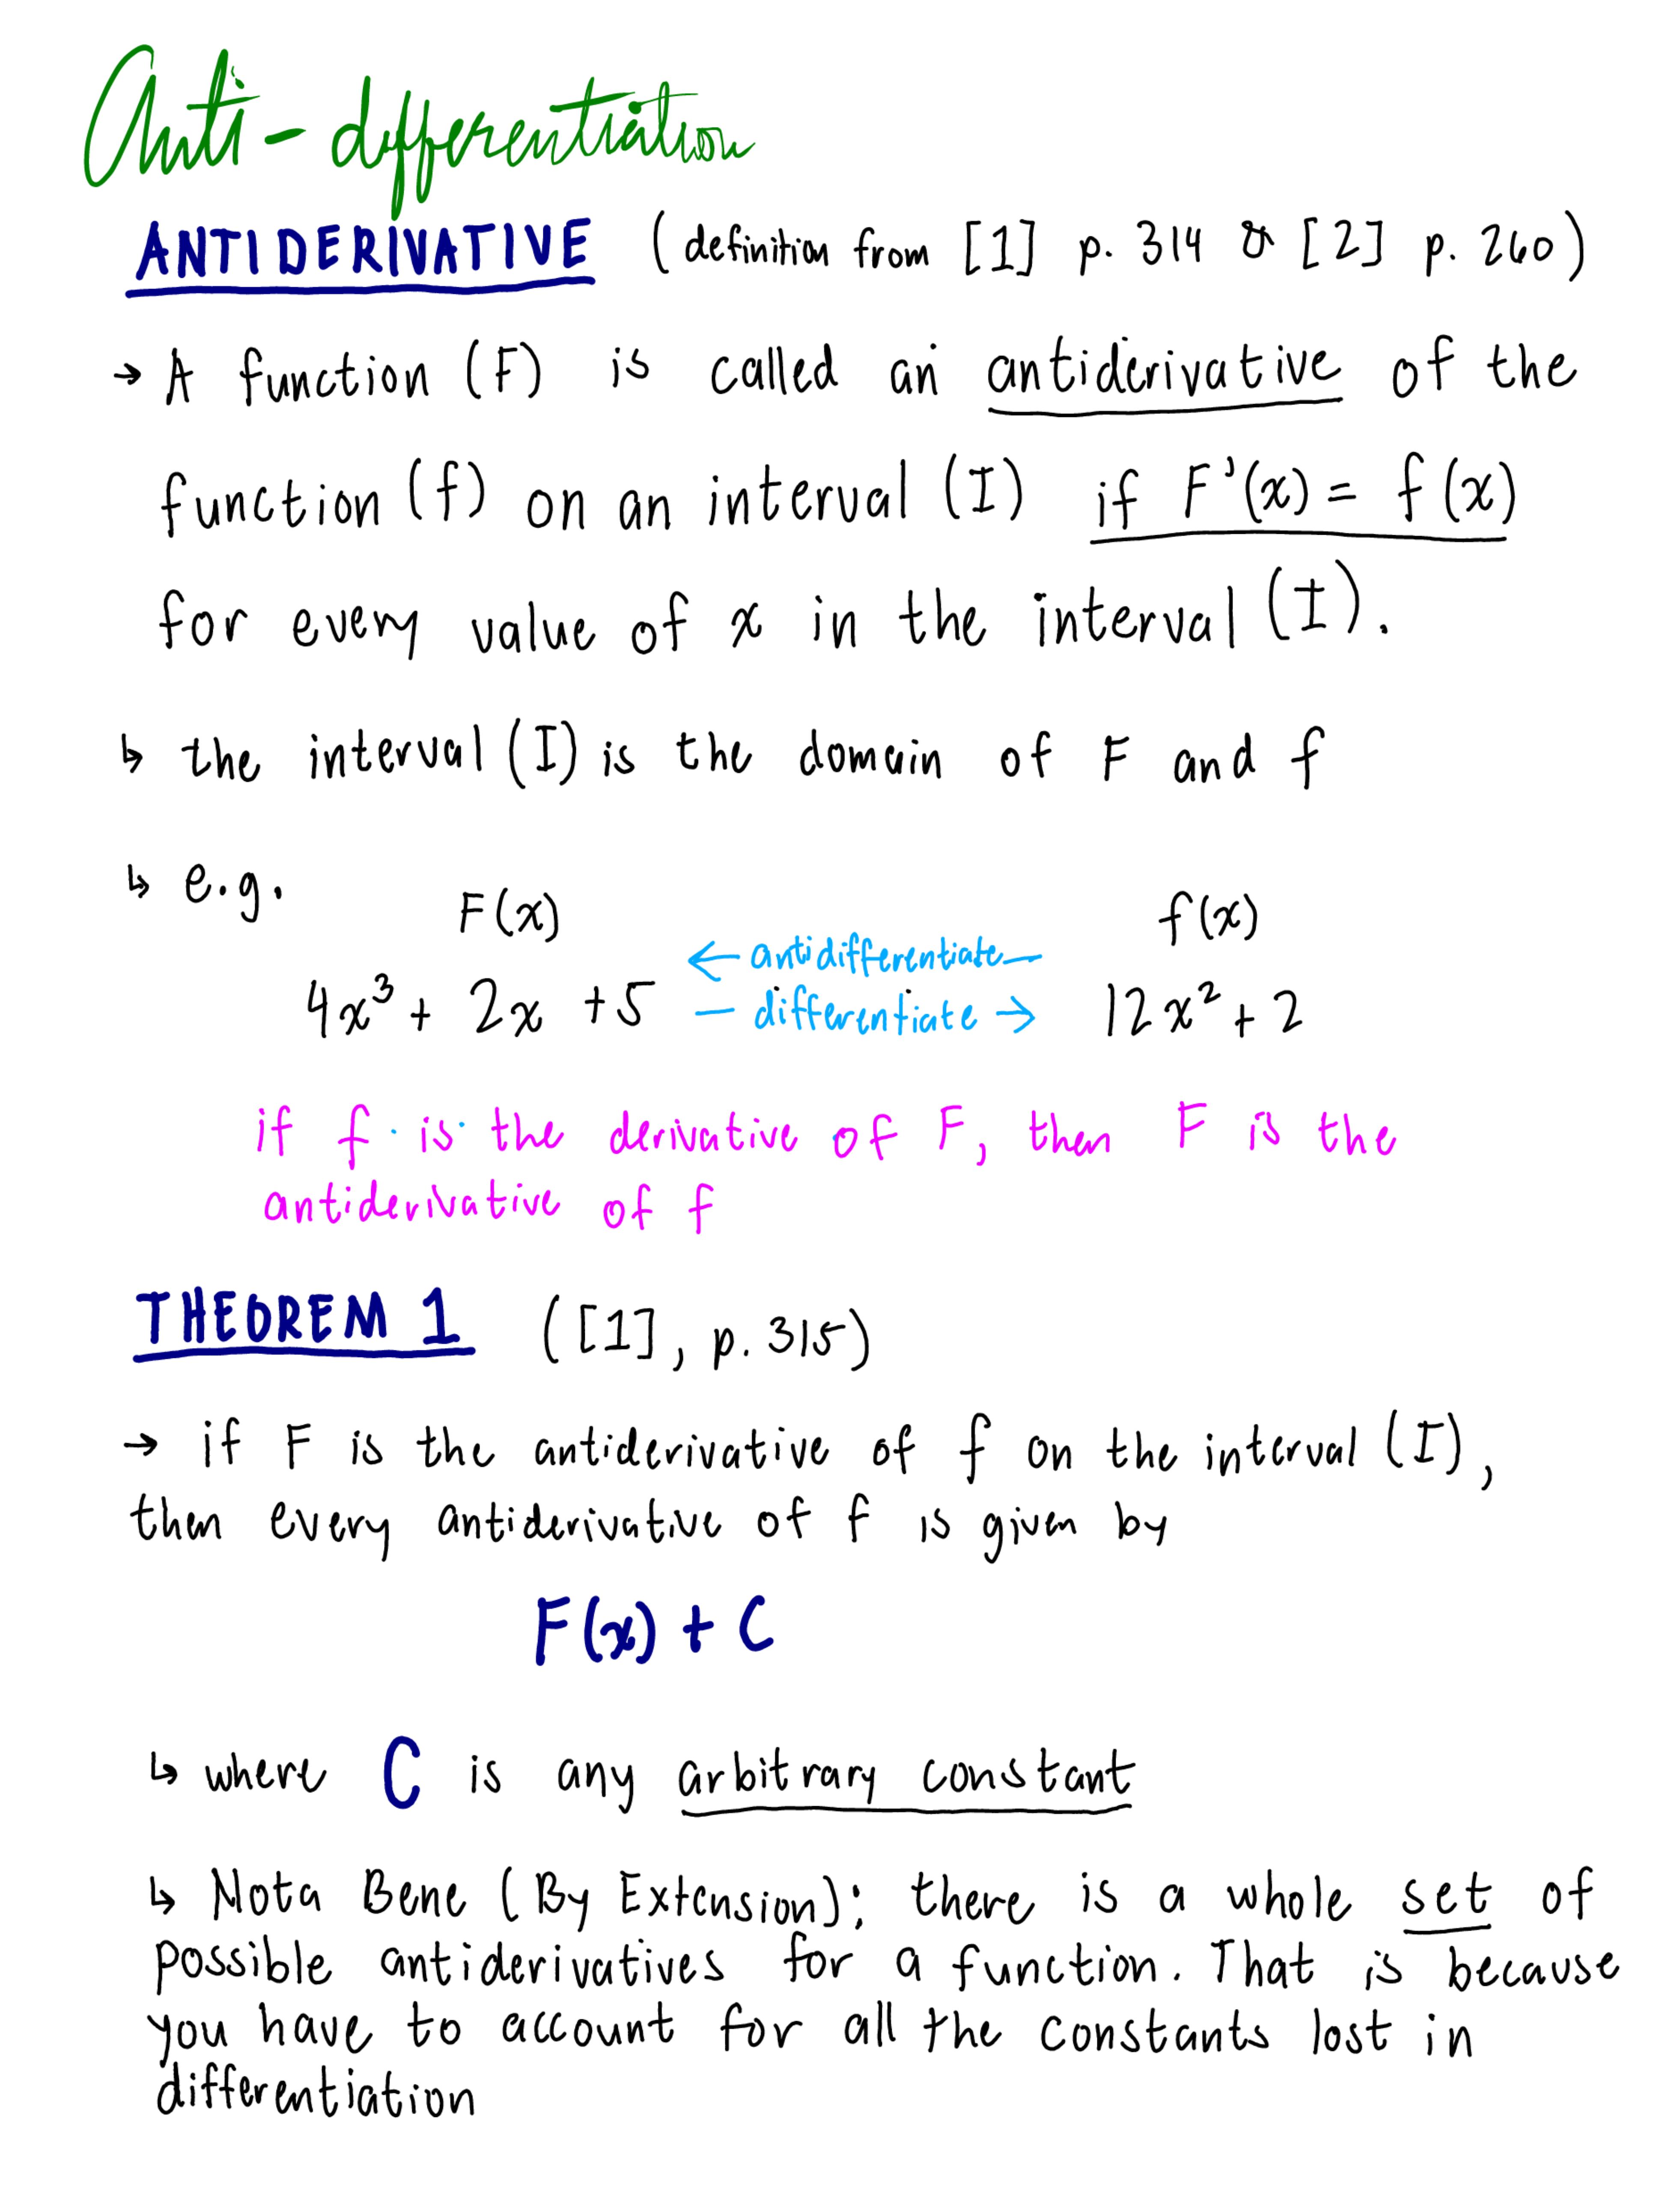 Anti-differentiation
ANTIDERIVATIVE (definition from [1] p. 314 & [2] p. 260)
→ A function (F) is called an antiderivative of the
function (f) on an interval (I) if F'(x) = f(x)
for every value of x in the interval (I).
↳ the interval (I) is the domain of F and f
↳ e.g.
F(x) f(x)
← antidifferentiate —
4x³ + 2x + 5 — differentiate → 12x² + 2
if f is the derivative of F, then F is the
antiderivative of f
THEOREM 1 ([1], p. 315)
→ if F is the antiderivative of f on the interval (I),
then every antiderivative of f is given by
F(x) + C
↳ where C is any arbitrary constant
↳ Nota Bene (By Extension): there is a whole set of
possible antiderivatives for a function. That is because
you have to account for all the constants lost in
differentiation